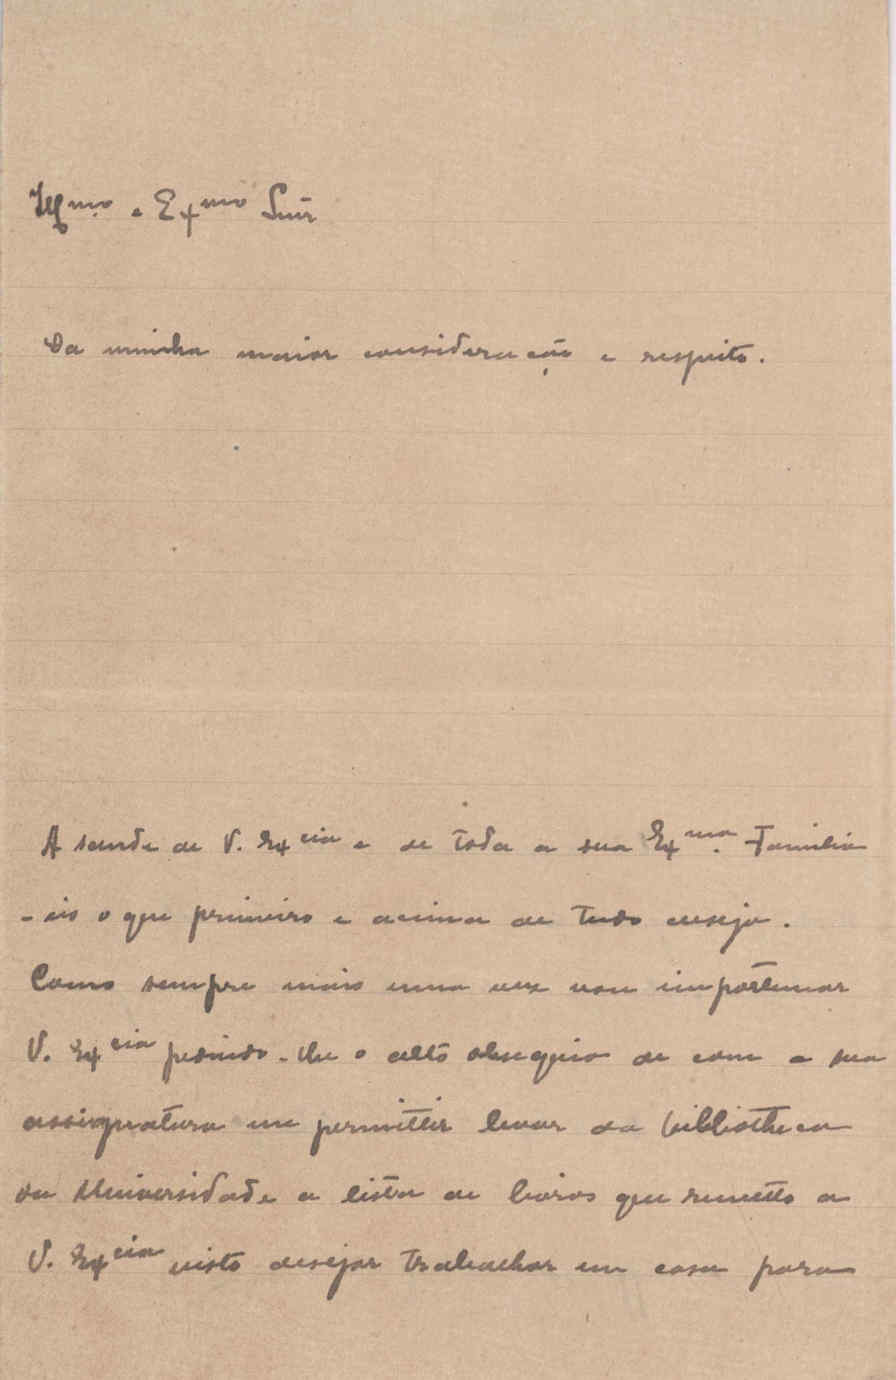 Illmo e Exmo Snr
Da minha maior consideração e respeito.
A saude de V. Excia e de toda a sua Exma Familia
- eis o que primeiro e acima de tudo desejo.
Como sempre mais uma vez vou importunar
V. Excia pedindo-lhe o alto obsequio de com a sua
assignatura me permittir levar da bibliotheca
da Universidade a lista de livros que remetto a
V. Excia visto desejar trabalhar em casa para